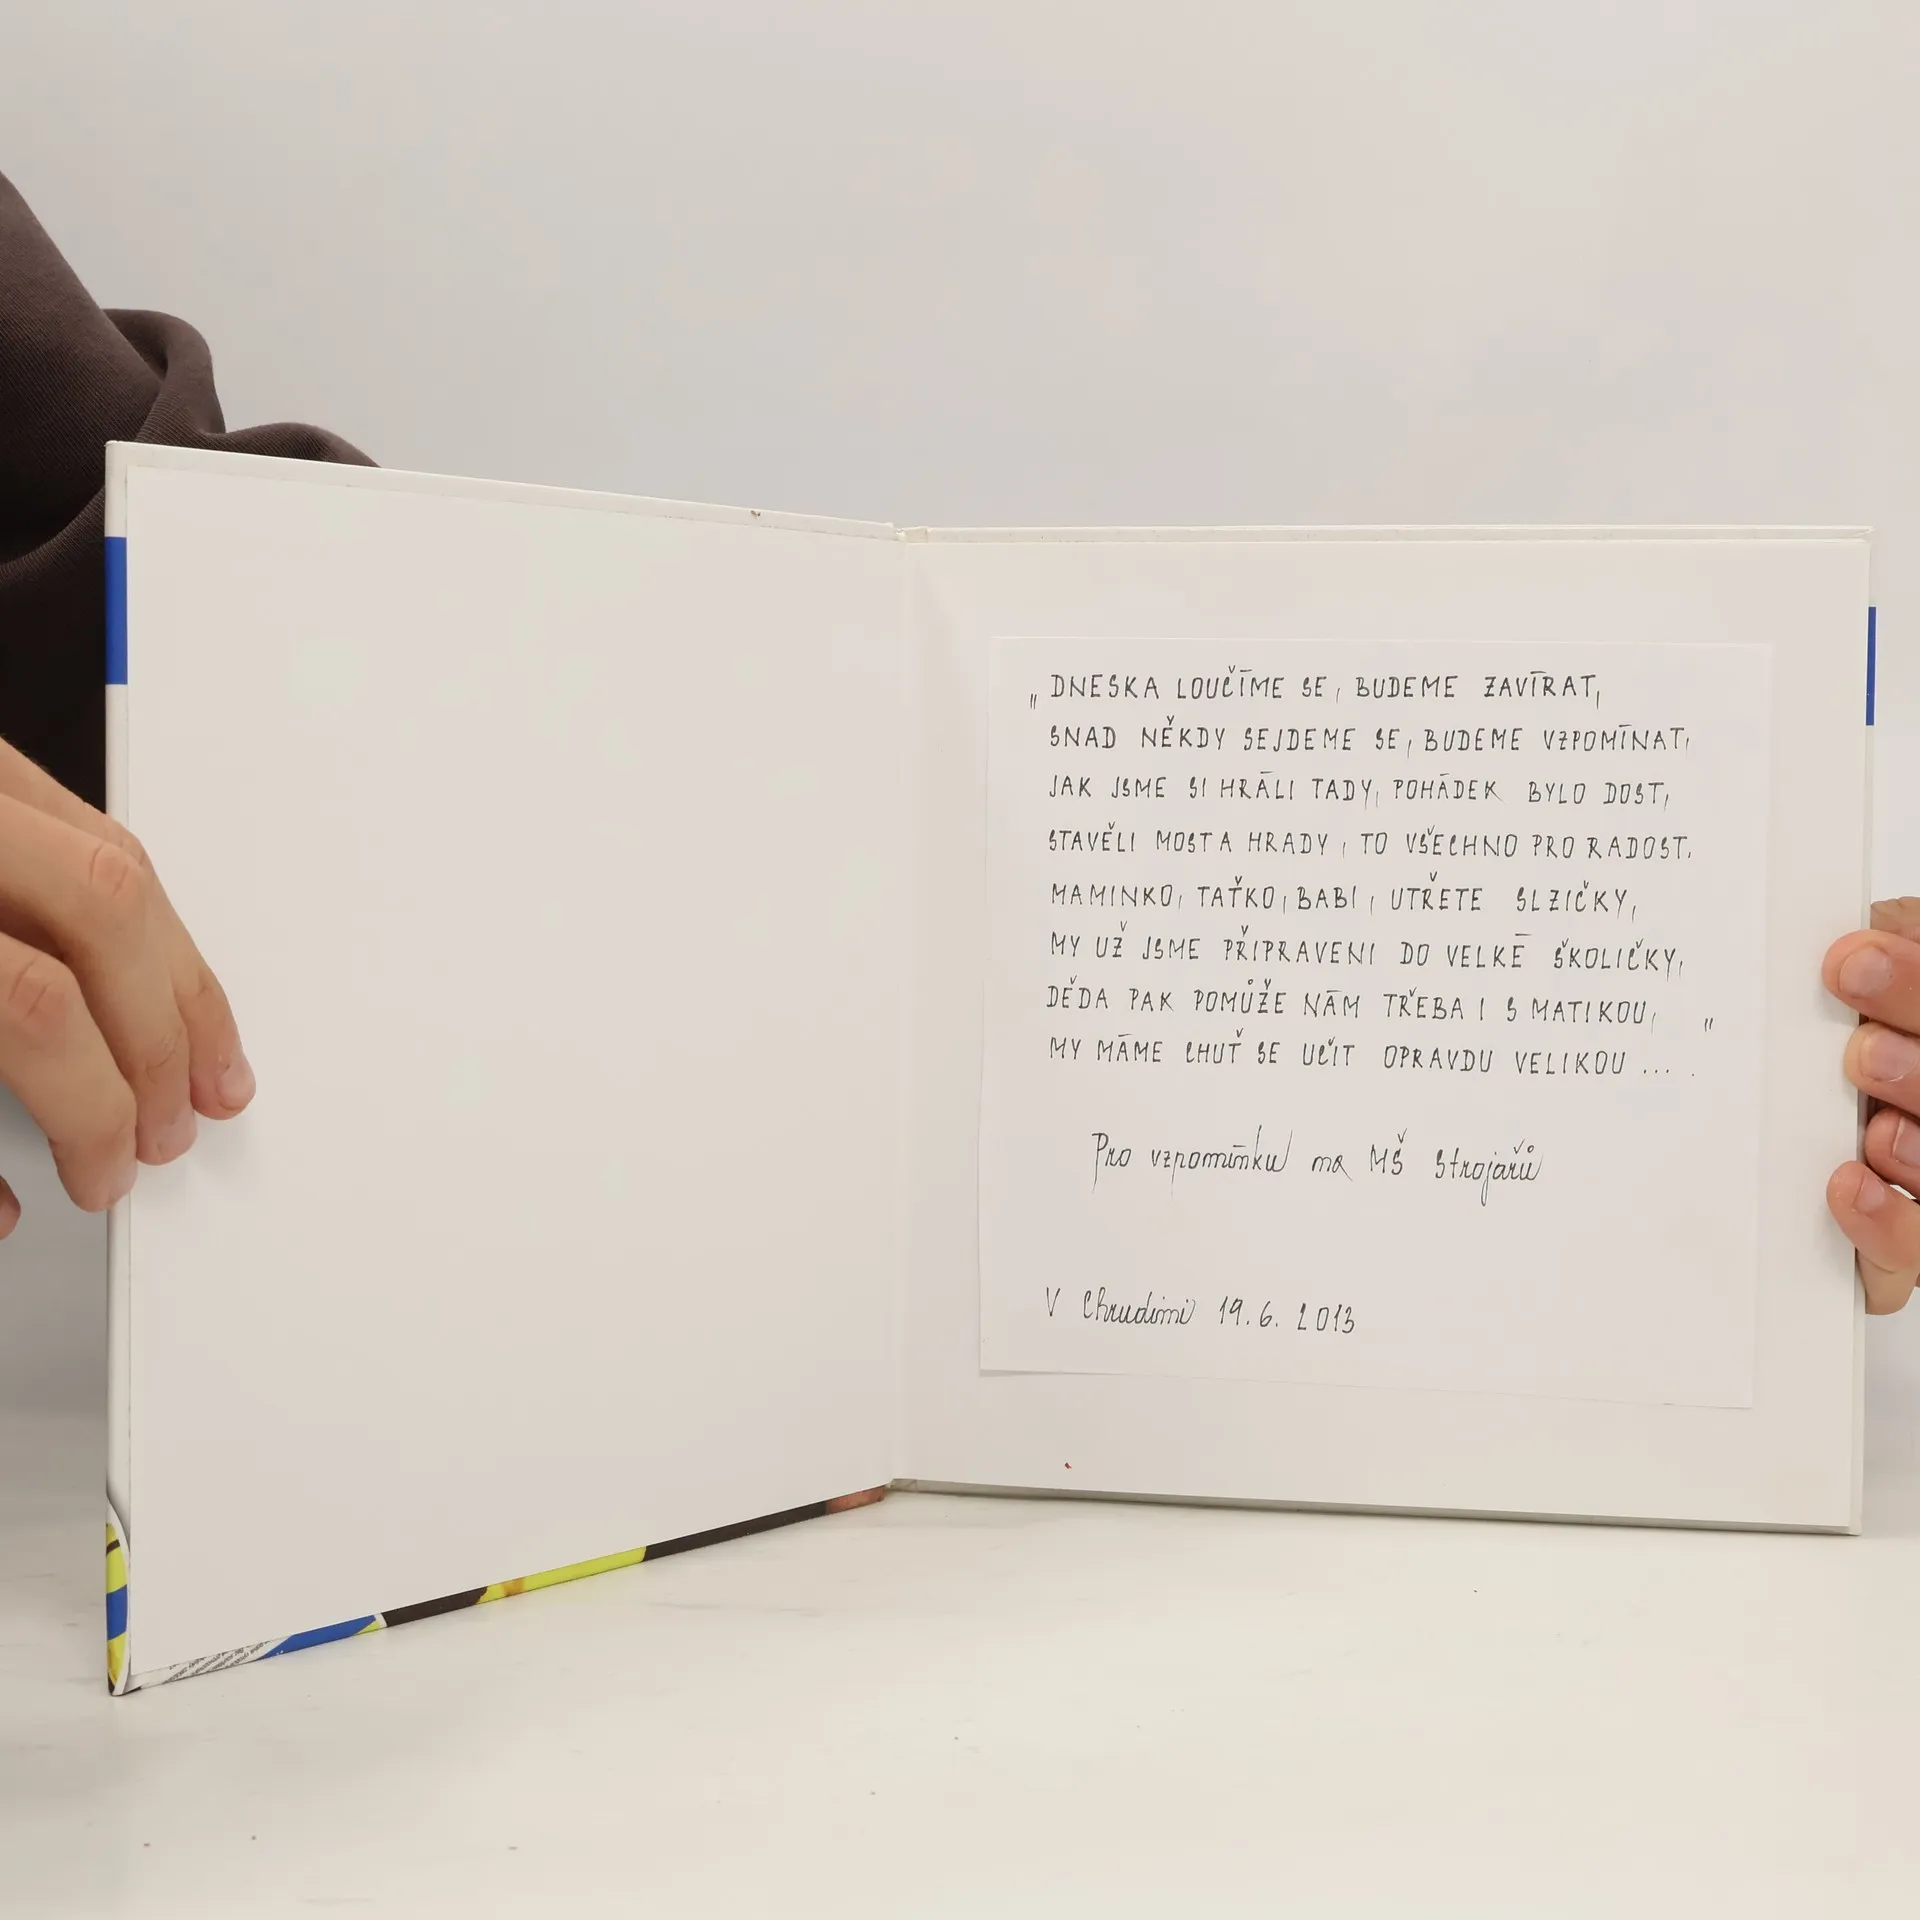 „DNESKA LOUČÍME SE, BUDEME ZAVÍRAT,
SNAD NĚKDY SEJDEME SE, BUDEME VZPOMÍNAT,
JAK JSME SI HRÁLI TADY, POHÁDEK BYLO DOST,
STAVĚLI MOST A HRADY, TO VŠECHNO PRO RADOST.
MAMINKO, TAŤKO, BABI, UTŘETE SLZIČKY,
MY UŽ JSME PŘIPRAVENI DO VELKÉ ŠKOLIČKY,
DĚDA PAK POMŮŽE NÁM TŘEBA I S MATIKOU,
MY MÁME CHUŤ SE UČIT OPRAVDU VELIKOU ... ."
Pro vzpomínku na MŠ Strojařů
V Chrudimi 19.6.2013